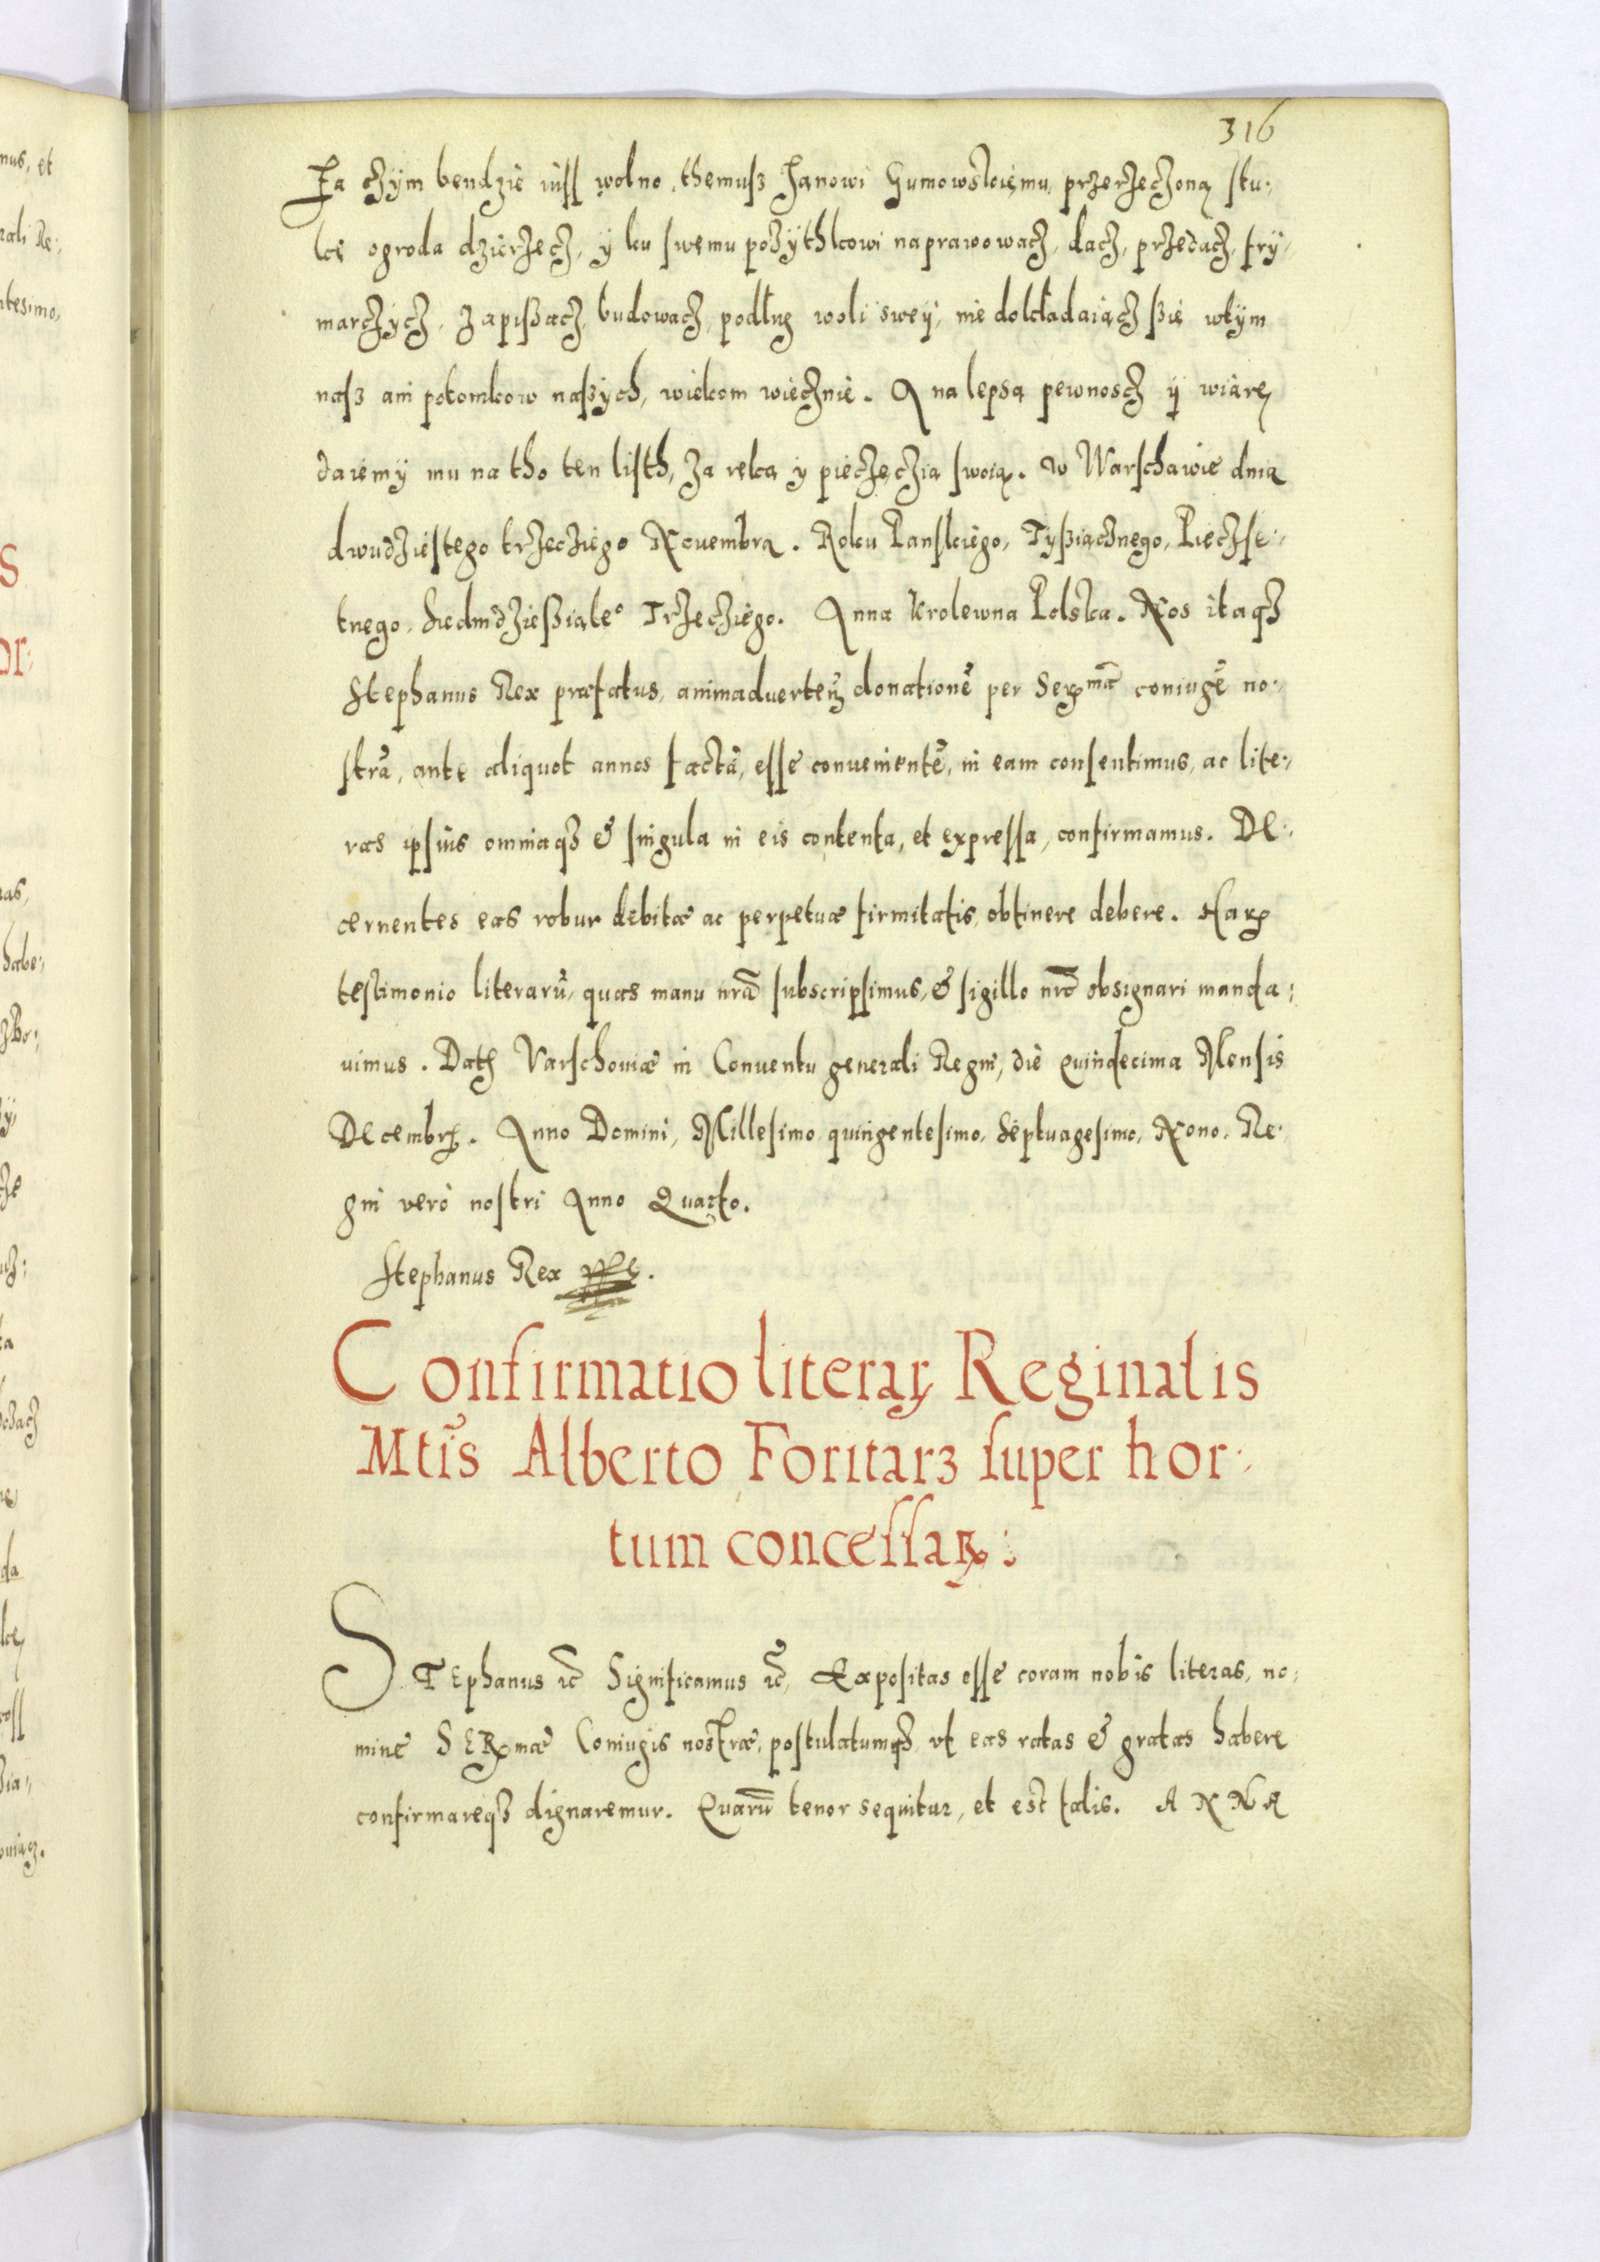 316
Za czym bendzie iuss wolno, themusz Janowi Gumowskiemu, przerzeczoną stu-
kę ogroda dzierzecz, y ku swemu pozythkowi naprawowacz, dacz, przedacz, fry-
marczycz, zapiszacz, budowacz, podług woli swey, nie dokładaiącz szie wtym
nasz ani potomkow naszych, wiekom wiecznie. A na lepsą pewnoscz y wiarę
daiemy mu na tho ten listh, za reką y pieczęczią swoią. W Warschawie dnia
dwudziestego trzecziego Nouembra. Roku Panskiego, Tysziącznego, Pieczse-
tnego, Siedmdziesziąteº Trzecziego. Anna Krolewna Polska. Nos itaqȝ
Stephanus Rex præfatus, animaduerteñ donationẽ per Serꝫmã coniugẽ no-
strã, ante aliquot annos factã, esse conuenientẽ, in eam consentimus, ac lite-
ras ipsius omniaqȝ & singula in eis contenta, et expressa, confirmamus. De-
cernentes eas robur debitæ ac perpetuæ firmitatis obtinere debere. Harꝝ
testimonio literarũ, quas manu nrã subscripsimus, & sigillo nrõ obsignari manda-
uimus. Datꝫ Varschouiæ in Conuentu generali Regni, die Quindecima Mensis
Decembrꝫ. Anno Domini, Millesimo quingentesimo, Septuagesimo, Nono. Re-
gni verò nostri Anno Quarto.
Stephanus Rex
Confirmatio literaꝝ Reginalis
Mtis̃ Alberto Foritarz super hor-
tum concessaꝝ:
STEphanus ꝛc̃ Significamus ꝛc̃, Expositas esse coram nobis literas, no-
mine SERꝫmæ Coniugis nostræ, postulatumqȝ, vt eas ratas & gratas habere
confirmareqȝ dignaremur. Quarũ tenor sequitur, et est talis. ANNA